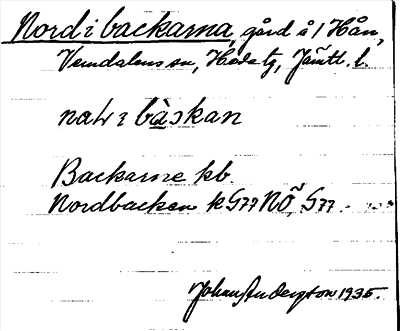 Nord i backarna, gård å 1 Hån,
Vemdalens sn, Hede tg, Jämtl. l.
Backarne kb.
Nordbacken k G77 NÖ, G77.
Johan Anderzton 1935.